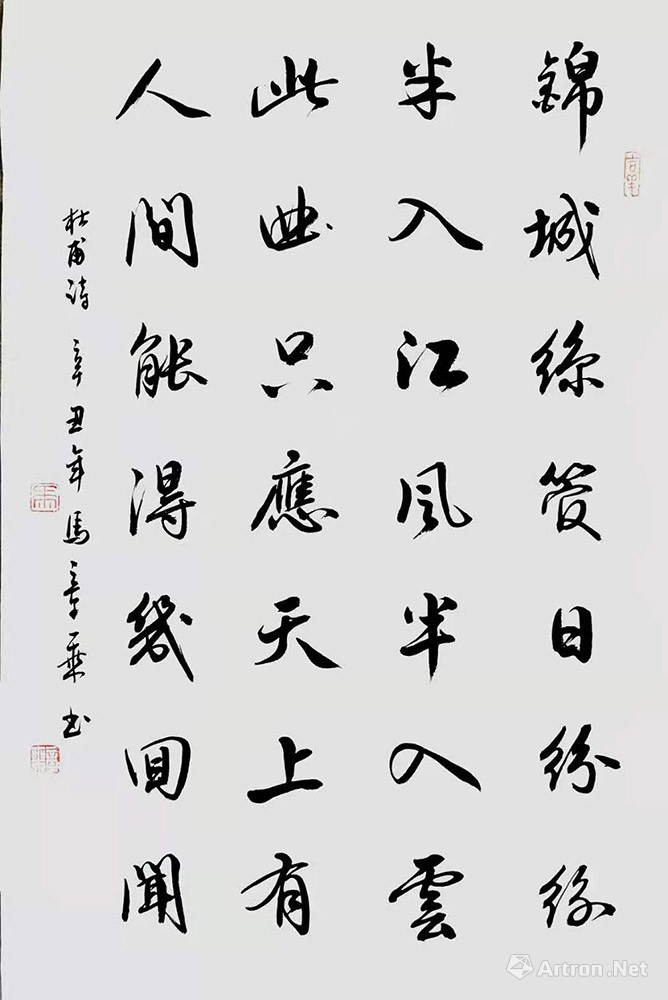 錦城絲管日紛紛
半入江風半入雲
此曲只應天上有
人間能得幾回聞
杜甫詩 辛丑年馬章乘书
Artron.Net